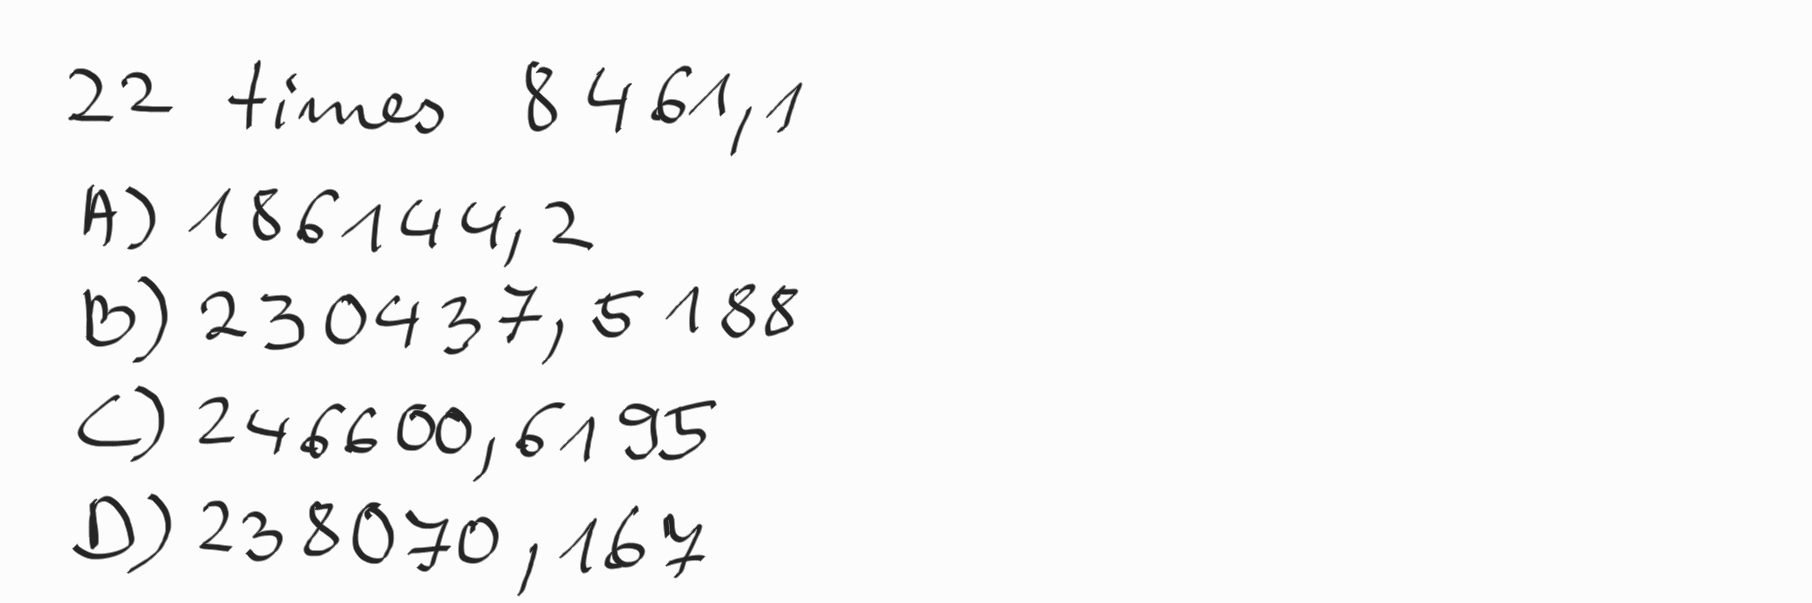 22 times 8461,1
A) 186144,2
B) 230437,5188
C) 246600,6195
D) 238070,167